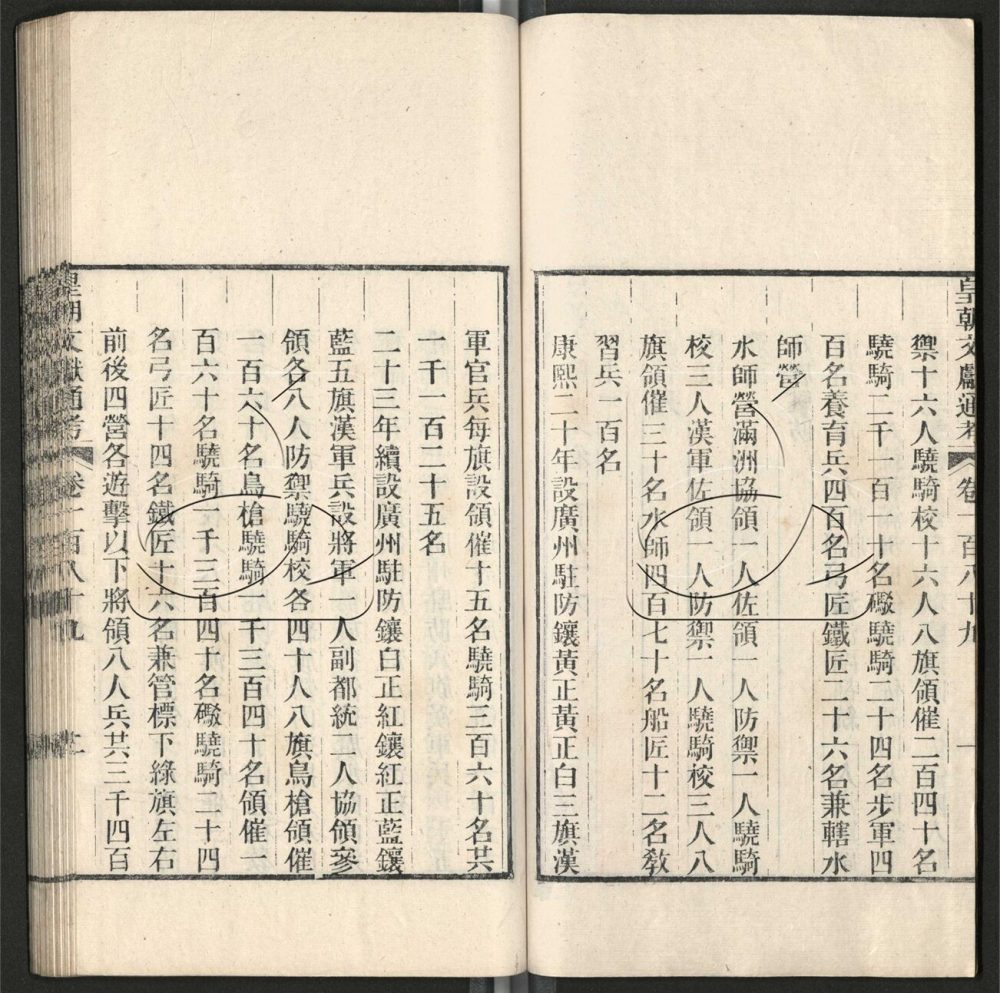 皇朝文獻通考 卷一百八十九 一
禦十六人驍騎校十六人八旗領催二百四十名
驍騎二千一百一十名礮驍騎二十四名步軍四
百名養育兵四百名弓匠鐵匠二十六名兼轄水
師營
水師營滿洲協領一人佐領一人防禦一人驍騎
校三人漢軍佐領一人防禦一人驍騎校三人八
旗領催三十名水師四百七十名船匠十二名教
習兵一百名
康熙二十年設廣州駐防鑲黃正黃正白三旗漢
軍官兵每旗設領催十五名驍騎三百六十名共
一千一百二十五名
二十三年續設廣州駐防鑲白正紅鑲紅正藍鑲
藍五旗漢軍兵設將軍一人副都統二人協領參
領各八人防禦驍騎校各四十人八旗鳥槍領催
一百六十名鳥槍驍騎一千三百四十名領催一
百六十名驍騎一千三百四十名礮驍騎二十四
名弓匠十四名鐵匠十六名兼管標下綠旗左右
前後四營各遊擊以下將領八人兵共三千四百
皇朝文獻通考 卷一百八十九